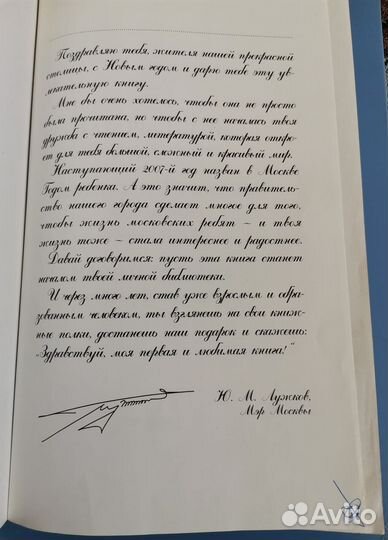 Поздравляю тебя, жителя нашей прекрасной
столицы, с Новым годом и дарю тебе эту ув-
лекательную книгу.
Мне бы очень хотелось, чтобы она не просто
была прочитана, но чтобы с нее началась твоя
дружба с чтением, литературой, которая откро-
ет для тебя большой, сложный и красивый мир.
Наступающий 2007-й год назван в Москве
Годом ребенка. А это значит, что правитель-
ство нашего города сделает многое для того,
чтобы жизнь московских ребят – и твоя
жизнь тоже – стала интереснее и радостнее.
Давай договоримся: пусть эта книга станет
началом твоей личной библиотеки.
И через много лет, став уже взрослым и обра-
зованным человеком, ты взглянешь на свои книж-
ные полки, достанешь наш подарок и скажешь:
«Здравствуй, моя первая и любимая книга!"
Ю. М. Лужков,
Мэр Москвы
Avito